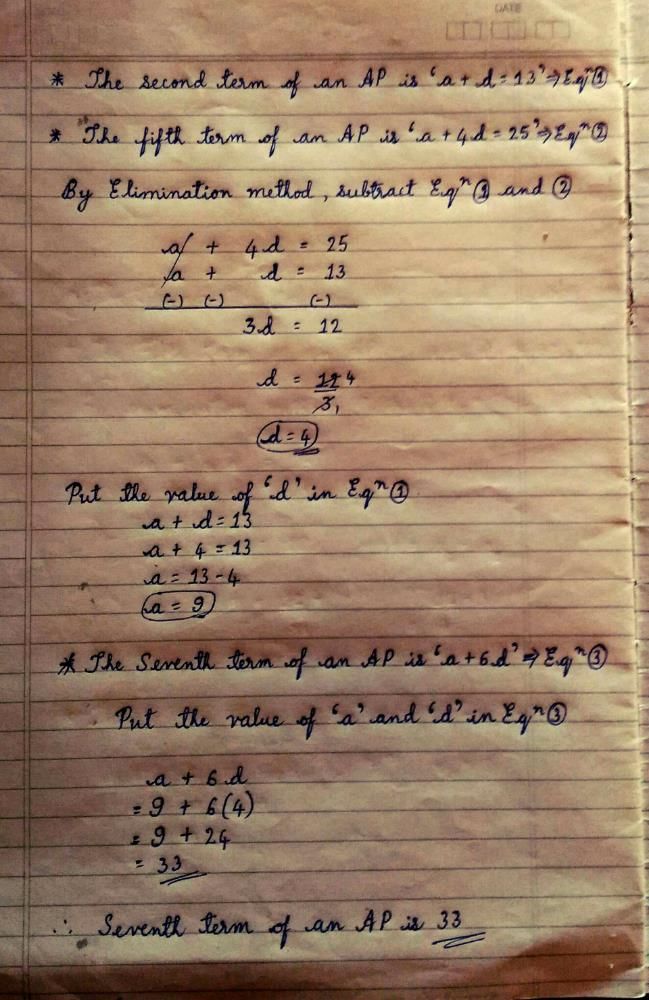 DATE
* The second term of an AP is 'a + d = 13' ⇒ Eqⁿ ①
* The fifth term of an AP is 'a + 4d = 25' ⇒ Eqⁿ ②
By Elimination method, subtract Eqⁿ ① and ②
a + 4d = 25
a + d = 13
(-) (-) (-)
3d = 12
d = 12 4
3 1
d = 4
Put the value of 'd' in Eqⁿ ①
a + d = 13
a + 4 = 13
a = 13 - 4
a = 9
* The Seventh term of an AP is 'a + 6d' ⇒ Eqⁿ ③
Put the value of 'a' and 'd' in Eqⁿ ③
a + 6d
= 9 + 6(4)
= 9 + 24
= 33
∴ Seventh term of an AP is 33